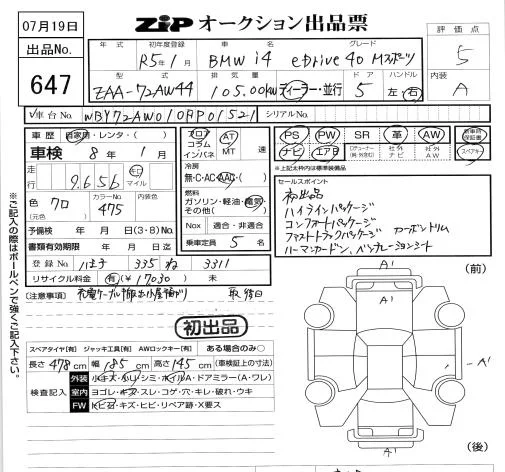 07月19日
ZiP オークション出品票
出品No.
647
評価点
5
内装
A
年式 初年度登録 車名 グレード
R5年1月 BMW i4 eDrive40 Mスポーツ
型式 排気量 ドア ハンドル
ZAA-72AW44 105.00kW ディーラー・並行 5 左・右
車台No. WBY72AW010FP01521 シリアルNo.
車歴 自家用・レンタ・( )
車検 8年1月
走行 9,656 キロ マイル
色 クロ (元色) カラーNo. 475 内装色
予備検 年 月 日迄 (3・8) No.
書類有効期限 年 月 日迄
登録No. 八王子 335 ね 3311
リサイクル料金 有(¥17030) 未
フロア コラム インパネ AT MT 速
冷房
無・C・AC・AAC・( )
燃料
ガソリン・軽油・電気 その他( )
Nox 適合・非適合
乗車定員 5名
PS PW SR 革 AW 新車時保証書
ナビ エアB 社外ナビ 社外AW スペアキー
*上記太枠内は標準装備品
セールスポイント
初出品
ハイラインパッケージ
コンフォートパッケージ
ファストトラックパッケージ カーボントリム
ハーマンカードン、ベンチレーションシート
[注意事項] 取、後日
初出品
スペアタイヤ[有] ジャッキ工具[有] AWロックキー[有] ある場合のみ○
長さ 478cm 幅 185cm 高さ 145cm (車検証上の寸法)
検査記入
外装 小キズ・小ハリ・シミ・ホイルA・ドアミラー(A・ワレ)
室内 ヨゴレ・キズ・スレ・コゲ・穴・キレ・破れ・ウキ
FW トビ石・キズ・ヒビ・リペア跡・X要ス
※ご記入の際はボールペンで強くご記入下さい。
(前)
A'
A'
A'
A'
(後)